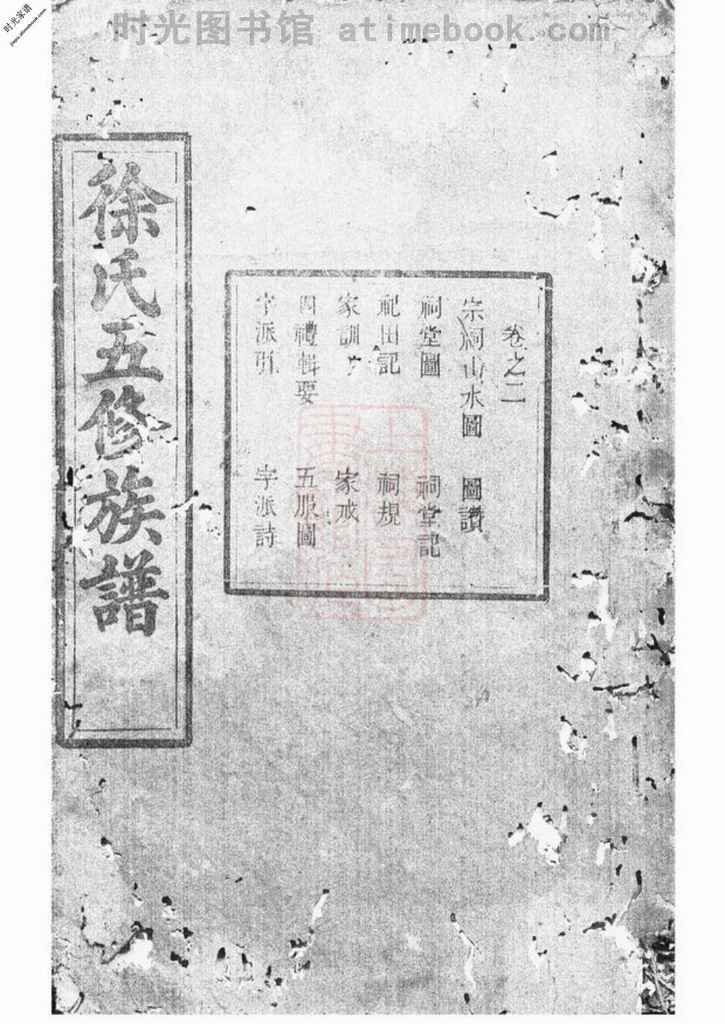 时光图书馆 atimebook.com
时光家谱
徐氏五修族譜
卷之二
宗祠山水圖 圖讚
祠堂圖 祠堂記
祀田記 祠規
家訓 家戒
四禮輯要 五服圖
字派引 字派詩